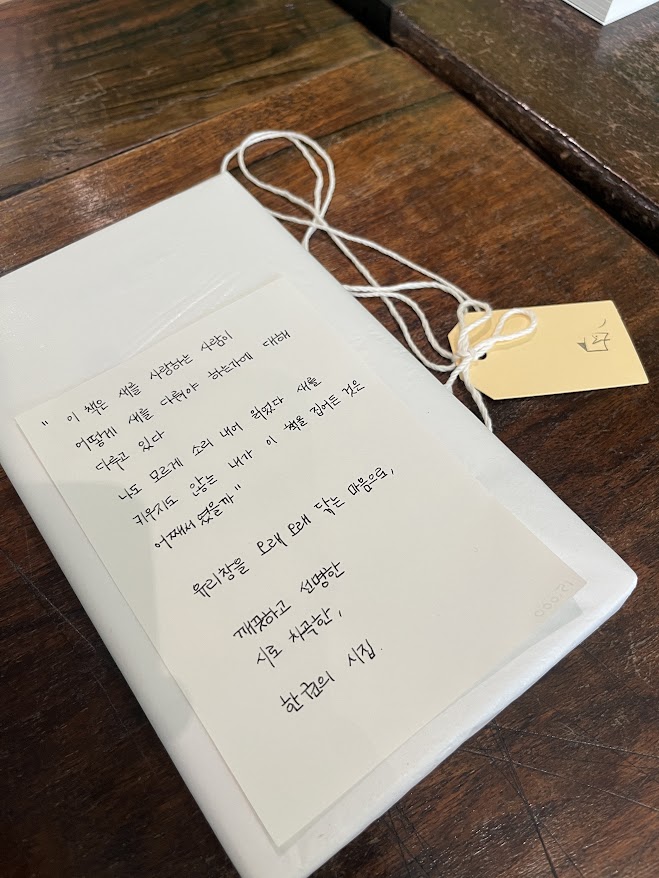 " 이 책은 새를 사랑하는 사람이
어떻게 새를 다뤄야 하는가에 대해
다루고 있다
나도 모르게 소리 내어 읽었다 새를
키우지도 않는 내가 이 책을 집어든 것은
어째서 였을까 "
유리창을 오래 오래 닦는 마음으로,
깨끗하고 선명한
시로 차곡한,
한 권의 시집.
12,000